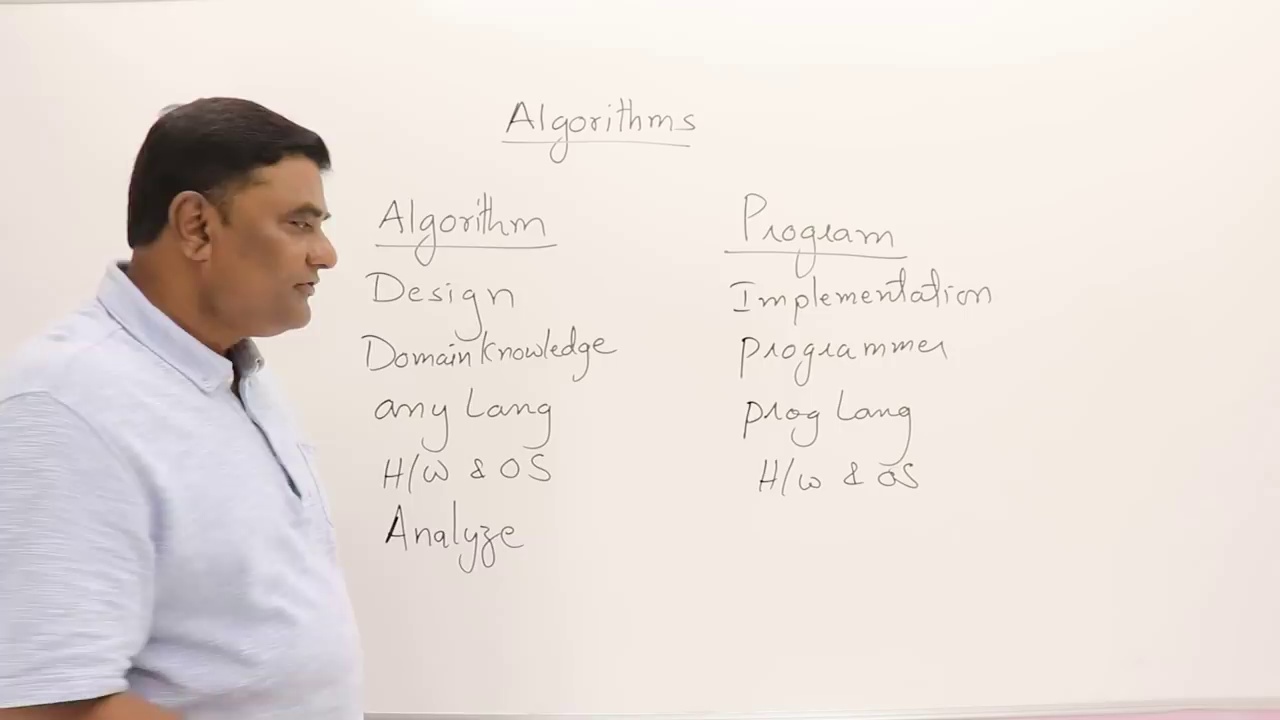 Algorithms
Algorithm
Design
Domain knowledge
any Lang
H/W & OS
Analyze
Program
Implementation
programmer
prog Lang
H/W & OS